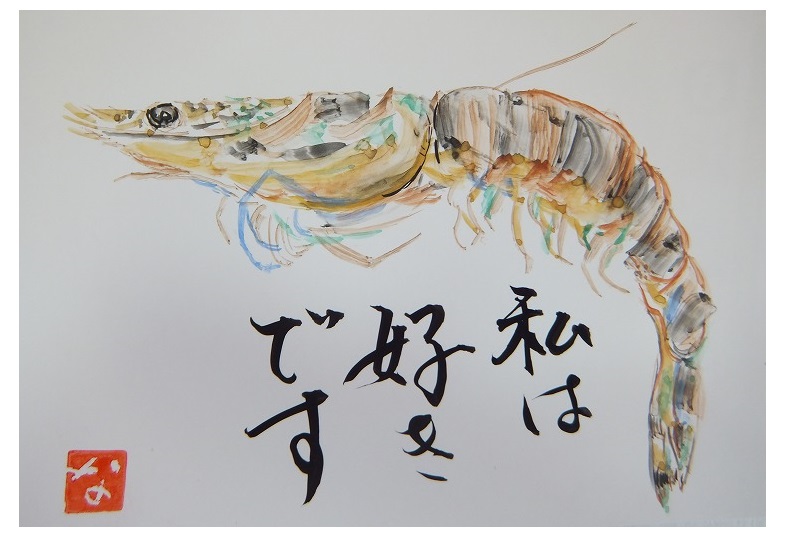 私は
好き
です